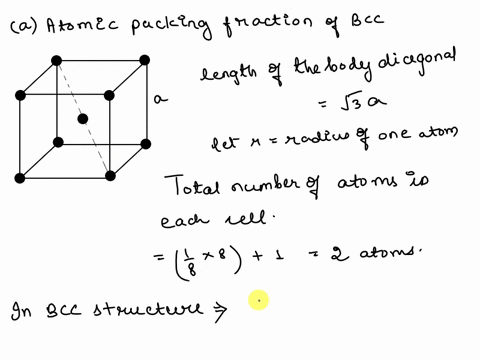 (a) Atomic packing fraction of BCC
length of the body diagonal
= √3 a
a
let r = radius of one atom
Total number of atoms is
each cell.
= (1/8 × 8) + 1 = 2 atoms.
In BCC structure ⇒